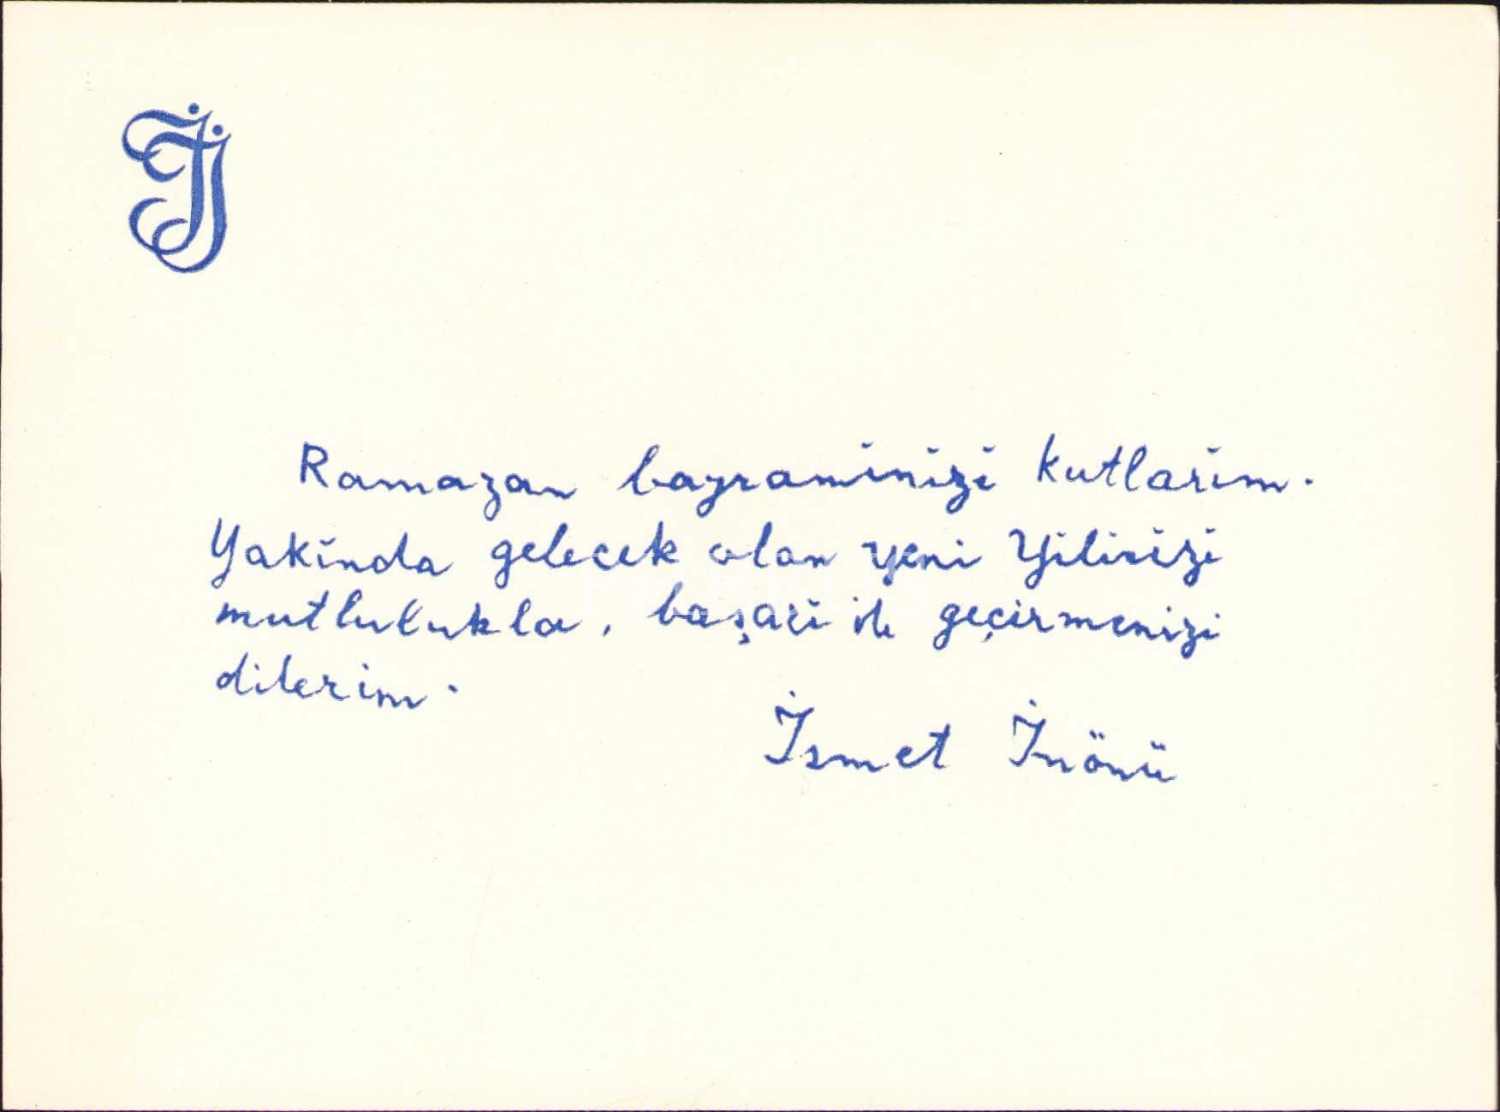 İİ
Ramazan bayraminizi kutlarim.
Yakinda gelecek olan yeni Yilinizi
mutlulukla, başari ile geçirmenizi
dilerim.
İsmet İnönü